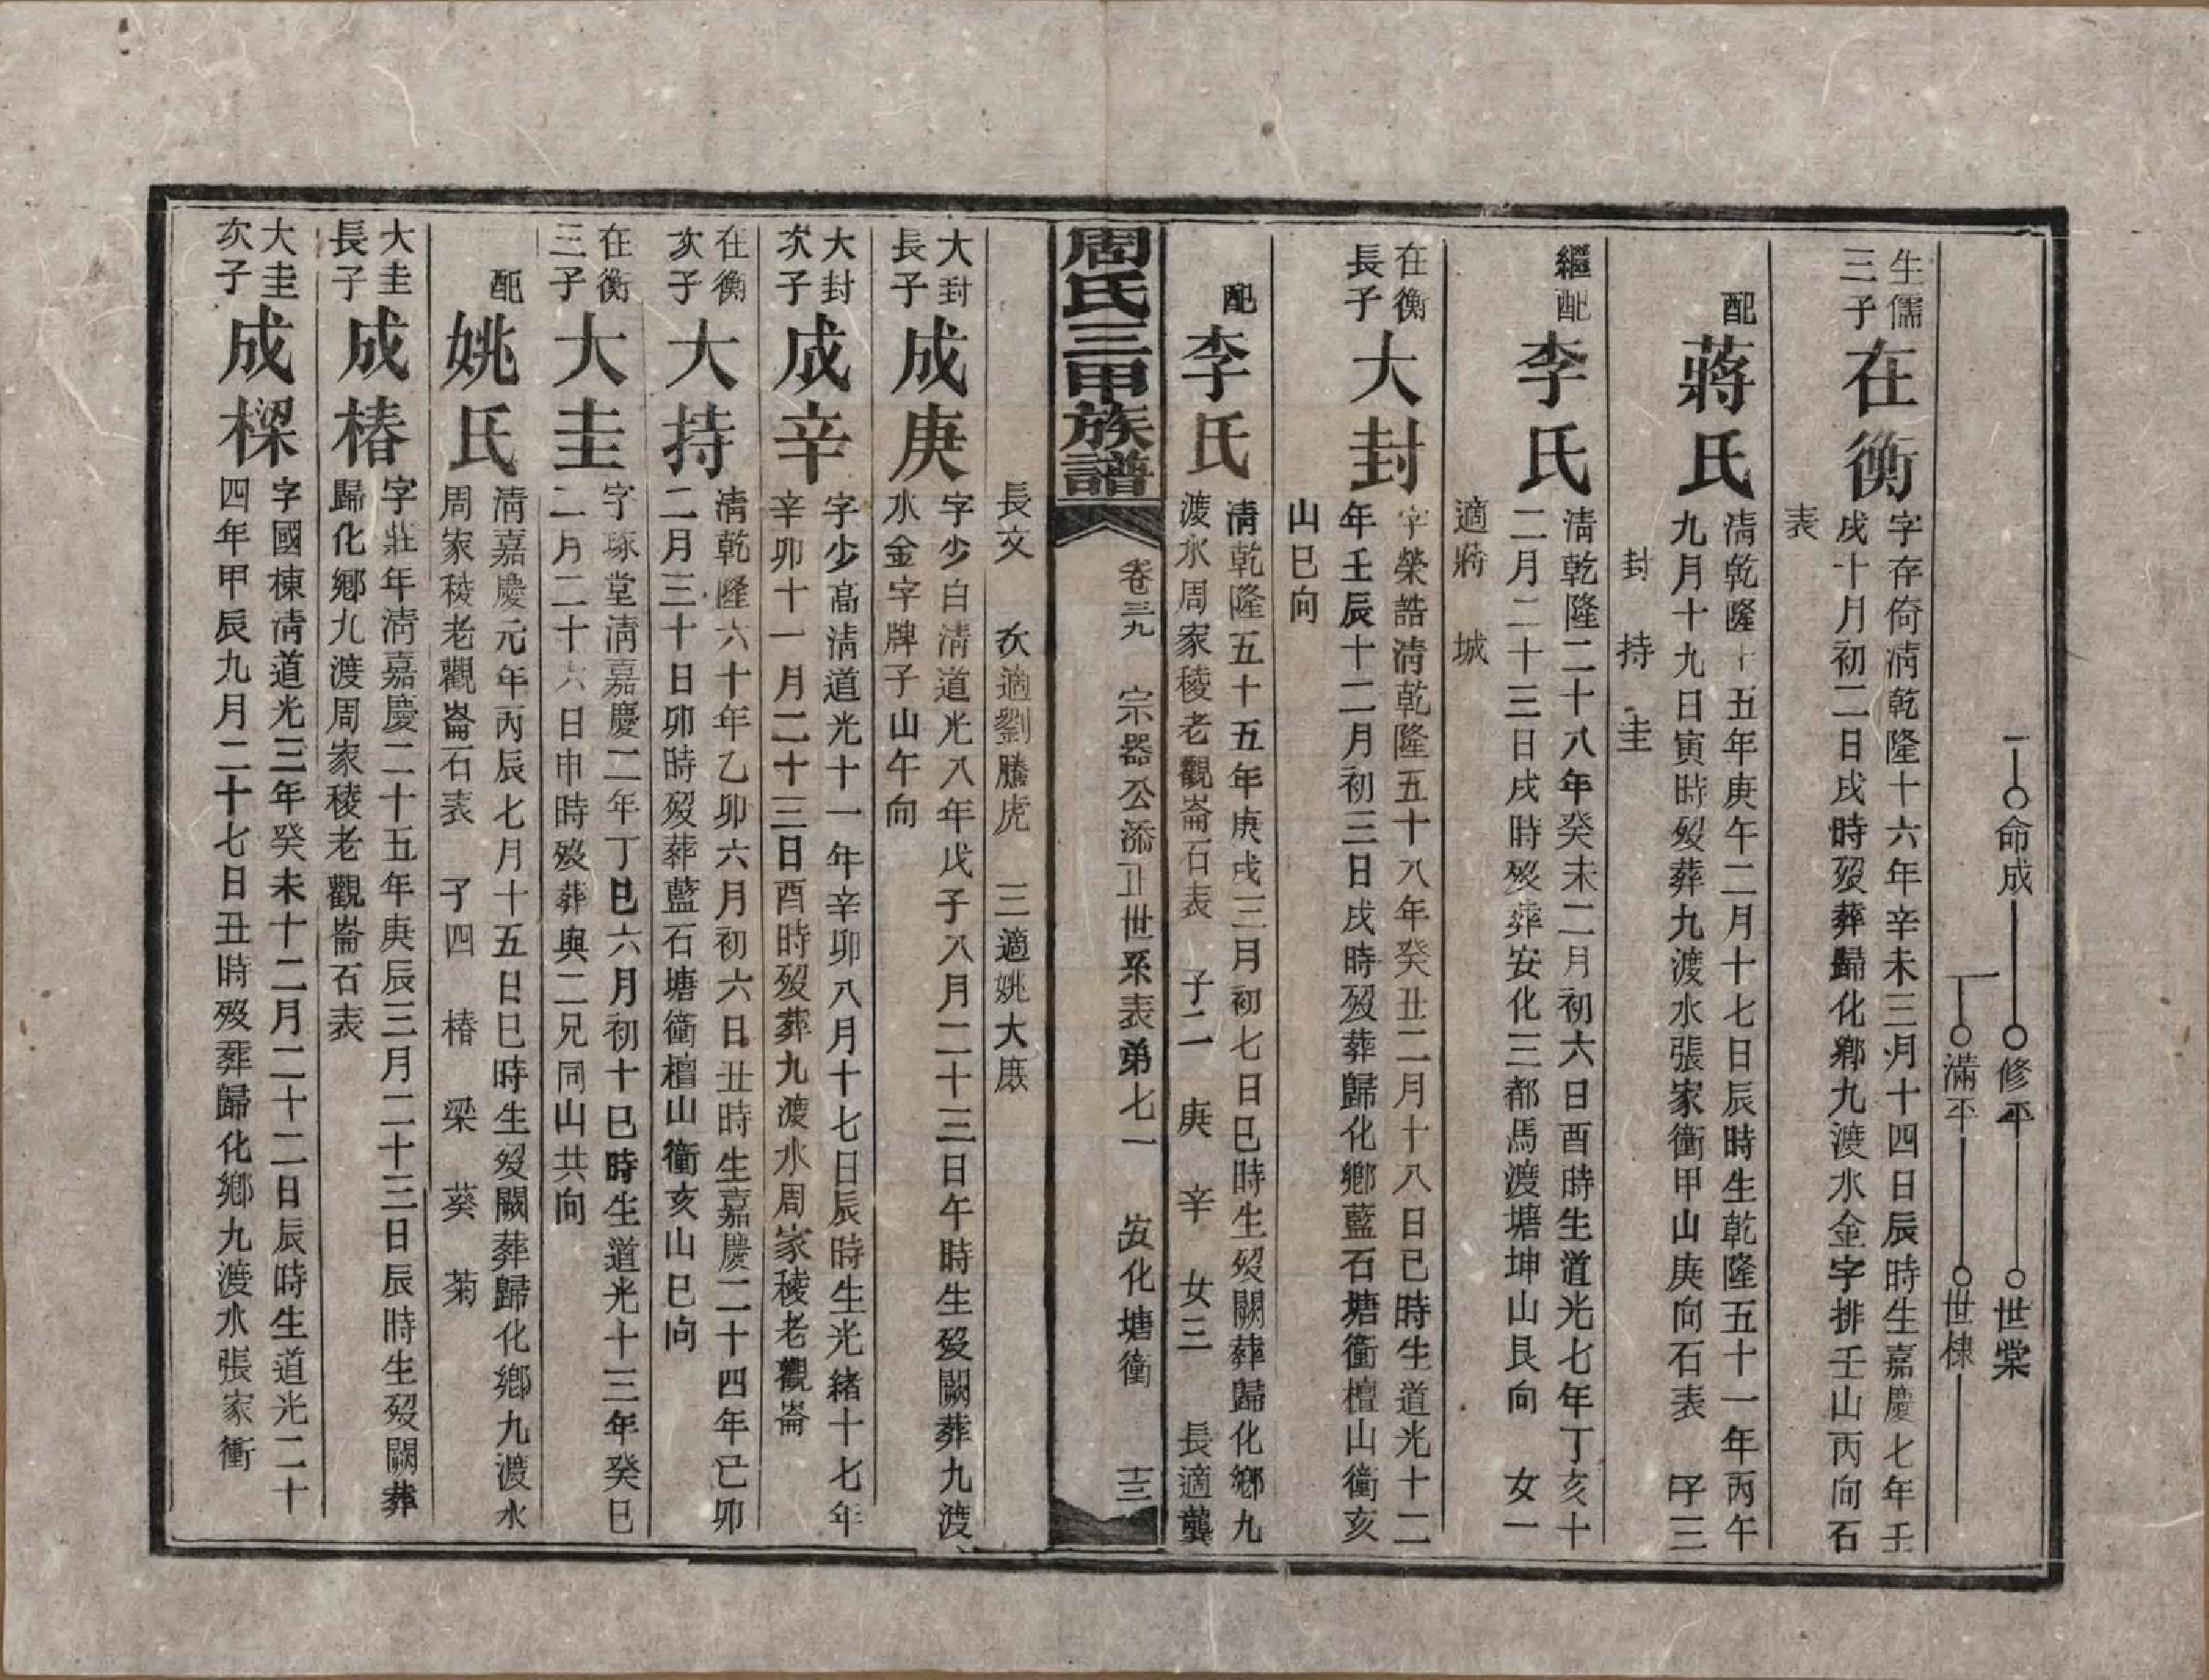 命成
修平 世棠
滿平 世棣
生儒
三子
在衡
字存倚淸乾隆十六年辛未三月十四日辰時生嘉慶七年壬
戌十月初二日戌時歿葬歸化鄕九渡水金字排壬山丙向石
表
配
蔣氏
淸乾隆十五年庚午二月十七日辰時生乾隆五十一年丙午
九月十九日寅時歿葬九渡水張家衝甲山庚向石表 子三
封 持 圭
繼配
李氏
淸乾隆二十八年癸未二月初六日酉時生道光七年丁亥十
二月二十三日戌時歿葬安化三都馬渡塘坤山艮向 女一
適蔣 城
在衡
長子
大封
字榮誥淸乾隆五十八年癸丑二月十八日巳時生道光十二
年壬辰十二月初三日戌時歿葬歸化鄕藍石塘衝檀山衝亥
山巳向
配
李氏
淸乾隆五十五年庚戌三月初七日巳時生歿闕葬歸化鄕九
渡水周家稜老觀崙石表 子二 庚 辛 女三 長適龔
周氏三甲族譜
卷三九 宗器公添正世系表弟七一 安化塘衝
十三
長文 次適劉騰虎 三適姚大㢘
大封
長子
成庚
字少白淸道光八年戊子八月二十三日午時生歿闕葬九渡
水金字牌子山午向
大封
次子
成辛
字少高淸道光十一年辛卯八月十七日辰時生光緖十七年
辛卯十一月二十三日酉時歿葬九渡水周家稜老觀崙
在衡
次子
大持
淸乾隆六十年乙卯六月初六日丑時生嘉慶二十四年己卯
二月三十日卯時歿葬藍石塘衝檀山衝亥山巳向
在衡
三子
大圭
字琢堂淸嘉慶二年丁巳六月初十巳時生道光十三年癸巳
二月二十六日申時歿葬與二兄同山共向
配
姚氏
淸嘉慶元年丙辰七月十五日巳時生歿闕葬歸化鄕九渡水
周家稜老觀崙石表 子四 椿 梁 葵 菊
大圭
長子
成椿
字莊年淸嘉慶二十五年庚辰三月二十三日辰時生歿闕葬
歸化鄕九渡周家稜老觀崙石表
大圭
次子
成樑
字國棟淸道光三年癸未十二月二十二日辰時生道光二十
四年甲辰九月二十七日丑時歿葬歸化鄕九渡水張家衝